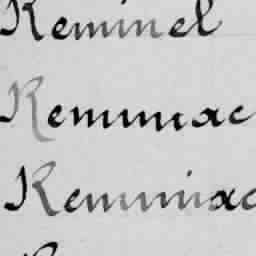 Reminel
Reminiac
Reminiac